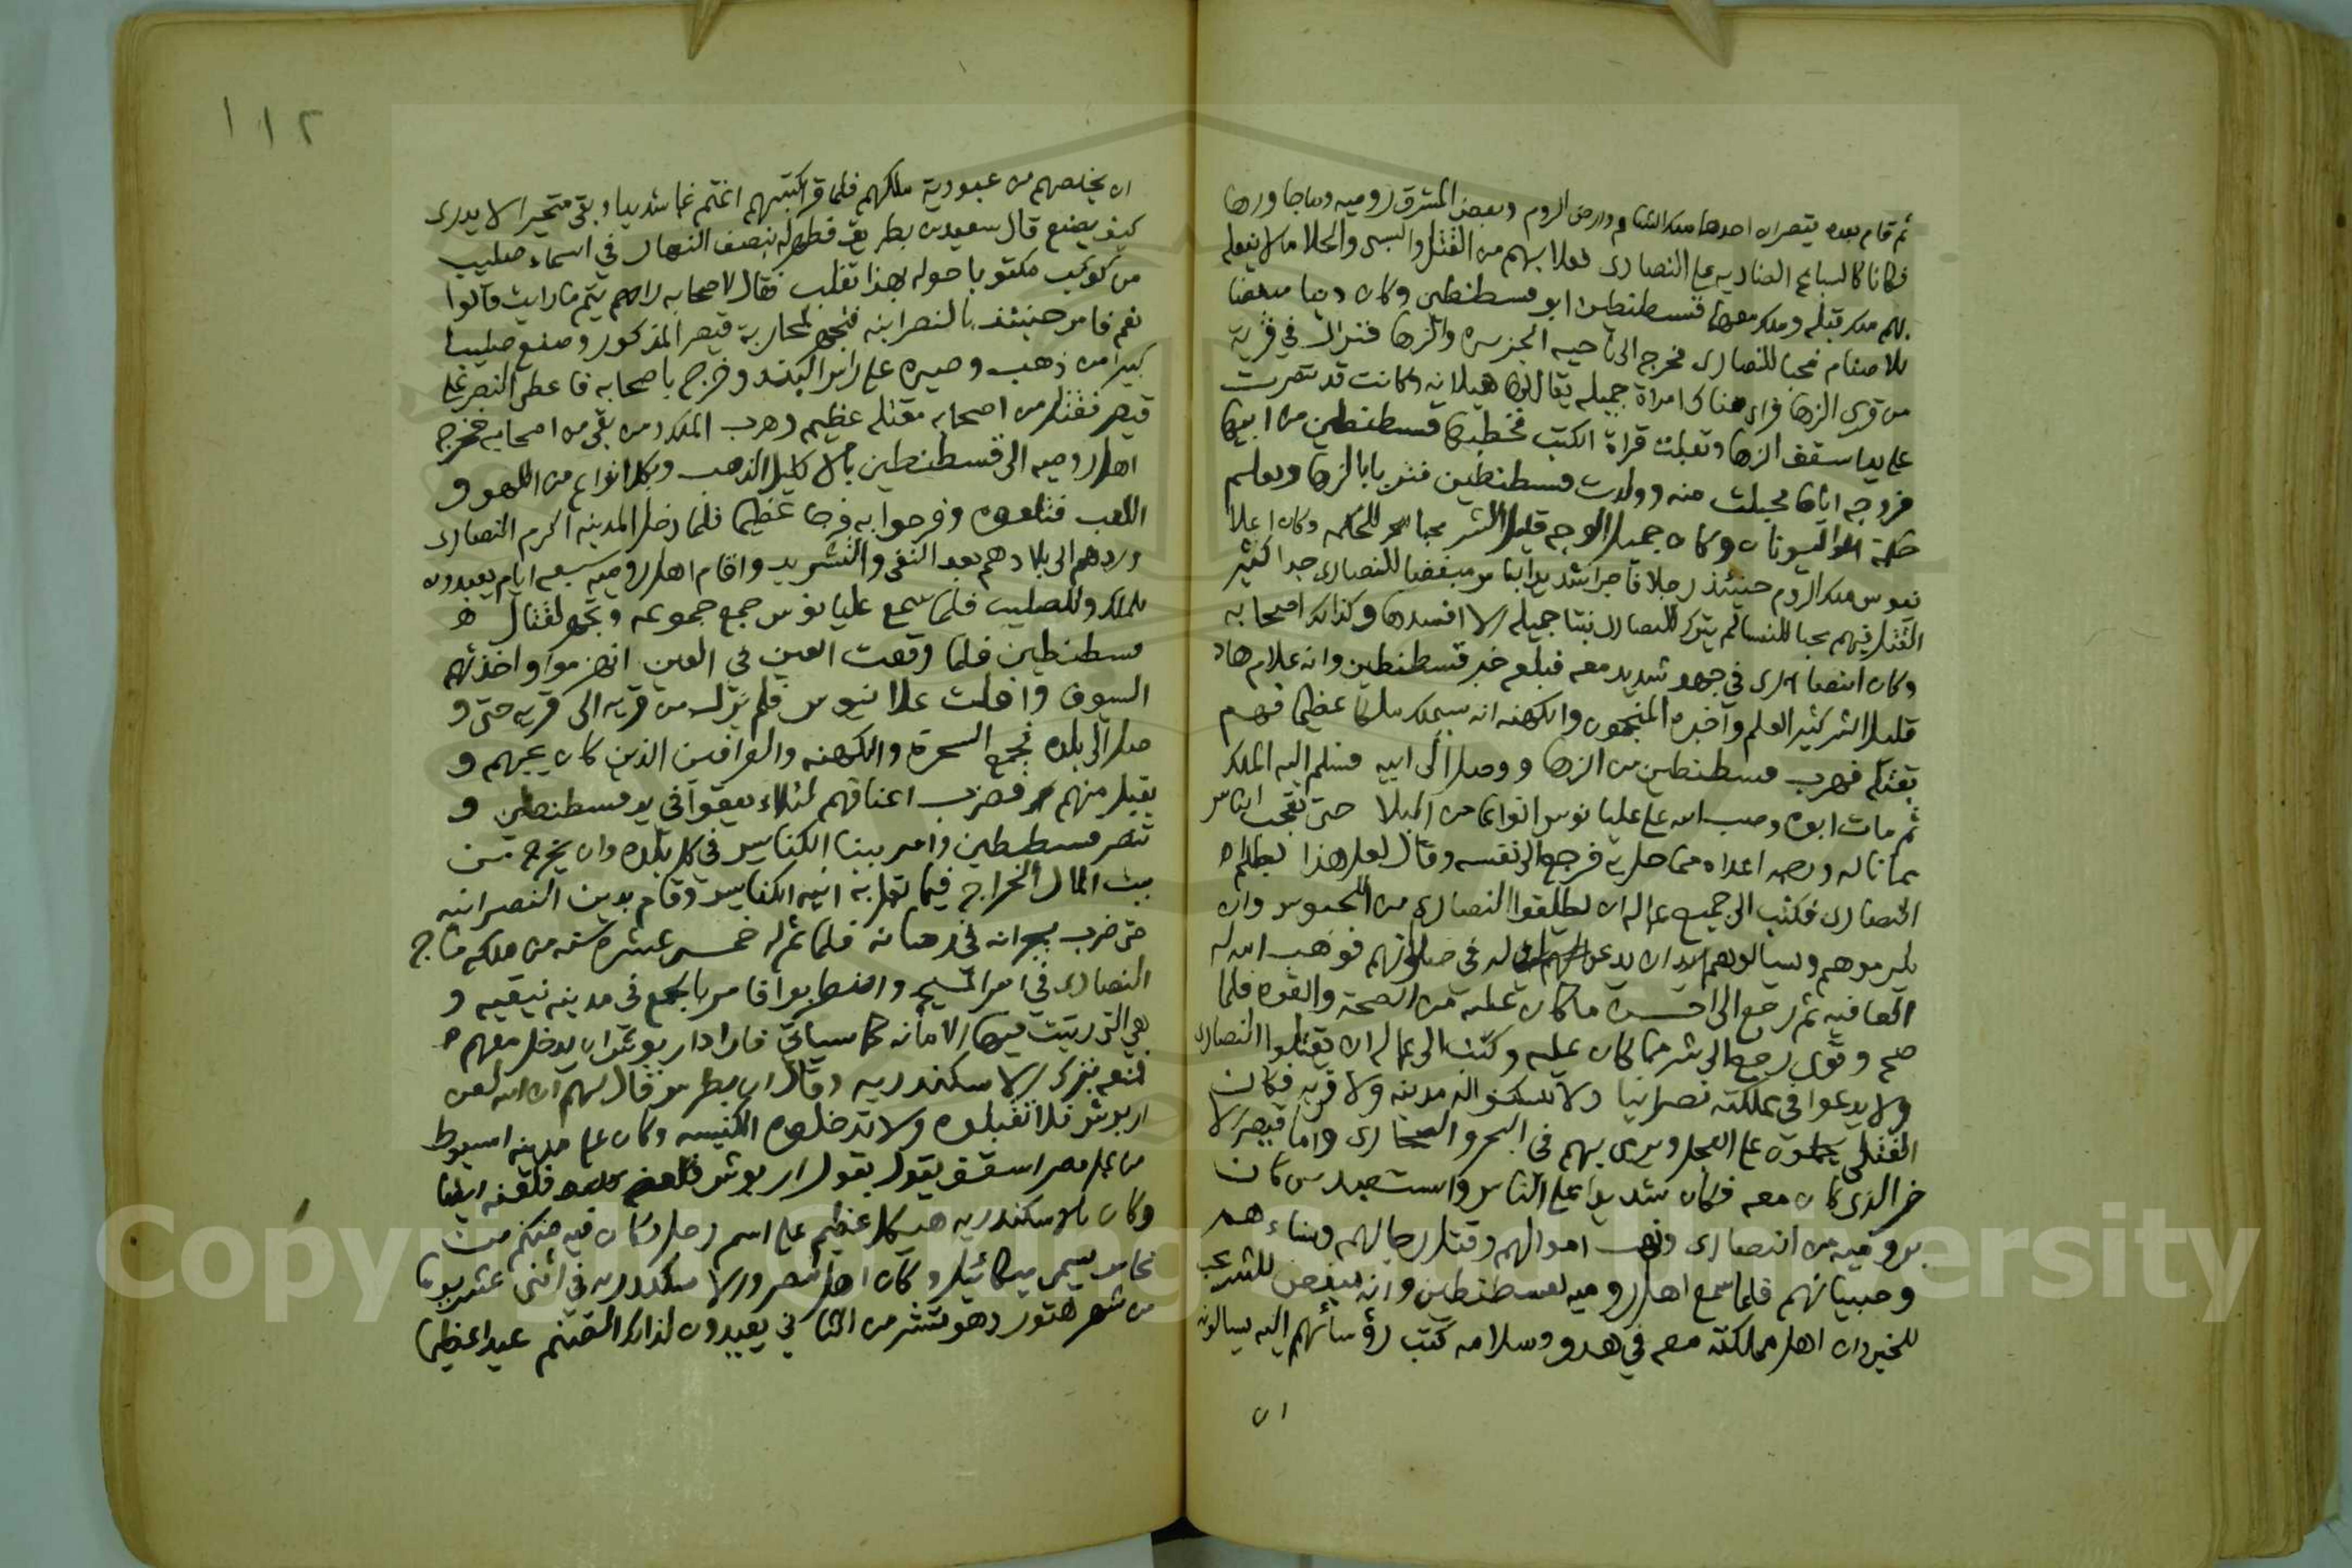 ثم قام بعده قيصران احدهما ملك الشام وارض الروم وبعض المشرق رومية وما جاورها
فكانا كالسباع الضاريه على النصارى فعلا بهم من القتل والسبى والجلا ما لا يفعله
بهم ملك قبله وملك معهما قسطنطين ابو قسطنطين وكان دينا مبغضا
للاصنام محبا للنصارى فخرج الى ناحيه الجزيره والرها فنزل في قرية
من قرى الرها فراى هناك امراة جميله يقال لها هيلانه وكانت قد تنصرت
على يد اسقف الرها وتعلمت قراة الكتب فخطبها قسطنطين من ابيها
فزوجه اياها فحبلت منه وولدت قسطنطين فتربا بالرها وتعلم
حكمة اليونان وكان جميل الوجه قليل الشر محبا للحكمه وكان اعلا
نيوس ملك الروم حينئذ رجلا فاجرا شديد الباس مبغضا للنصارى جدا كثير
القتل فيهم محبا للنسا لم يترك للنصارى بنتا جميله الا افسدها وكذلك اصحابه
وكان النصارى في جهد شديد معه فبلغه خبر قسطنطين وانه غلام هاد
قليل الشر كثير العلم واخبره المنجمون والكهنه انه سيملك ملكا عظيما فهم
بقتله فهرب قسطنطين من الرها ووصل الى ابيه فسلم اليه الملك
ثم مات ابوه وصب الله على عليانوس انواعا من البلا حتى تعجب الناس
مما ناله ورحمه اعداه مما حل به فرجع الى نفسه وقال لعل هذا لظلم
النصارى فكتب الى جميع عماله ان يطلقوا النصارى من الحبوس وان
يكرموهم ويسالوهم ان يدعو له في صلاتهم فوهب الله له
العافيه ثم رجع الى احسن ما كان عليه من الصحة والقوه فلما
صح وقوى رجع الى شر مما كان عليه وكتب الى عماله ان يقتلوا النصارى
ولا يدعوا في مملكته نصرانيا ولا يسكنوا له مدينه ولا قريه فكان
القتلى يحملون على العجل ويرمى بهم في البحر والصحارى واما قيصر الا
خر الذى كان معه فكان شديدا على الناس واستعبد من كان
برومية من النصارى ونهب اموالهم وقتل رجالهم ونساءهم
وصبيانهم فلما سمع اهل روميه بقسطنطين وانه مبغض للشر محب
للخير وان اهل مملكته معه في هدو وسلامه كتب رؤسائهم اليه يسالونه
ان
١١٢
ان يخلصهم من عبودية ملكهم فلما قرا كتبهم اغتم غما شديدا وبقى متحيرا لا يدرى
كيف يصنع قال سعيد بن بطريق فظهر له نصف النهار في السماء صليب
من كوكب مكتوبا حوله بهذا تغلب فقال لاصحابه رايتم ما رايت قالوا
نعم فامن حينئذ بالنصرانيه فتجهز لمحاربة قيصر المذكور وصنع صليبا
كبيرا من ذهب وصيره على راس البند وخرج باصحابه فاعطى النصر على
قيصر فقتل من اصحابه مقتله عظيمه وهرب الملك ومن بقى من اصحابه فخرج
اهل روميه الى قسطنطين بالاكليل الذهب وبكل انواع من اللهو و
اللعب فتلقوه وفرحوا به فرحا عظيما فلما دخل المدينه اكرم النصارى
وردهم الى بلادهم بعد النفى والتشريد واقام اهل روميه سبعه ايام يعيدون
للملك وللصليب فلما سمع عليانوس جمع جموعه وتجهز لقتال
قسطنطين فلما وقعت العين في العين انهزموا واخذتهم
السيوف وافلت عليانيوس فلم يزل من قريه الى قريه حتى و
صل الى بلده فجمع السحرة والكهنه والعرافين الذين كان يحبهم و
يقبل منهم فضرب اعناقهم لئلا يقعوا في يد قسطنطين و
تنصر قسطنطين وامر ببنا الكنايس في كل بلده وان يخرج من
بيت المال الخراج فيما تعمل به ابنيه الكنايس وقام بدين النصرانيه
حتى ضرب بجرانه في زمانه فلما تم له خمس عشره سنه من ملكه هاج
النصارى في امر المسيح واضطربوا فامر بالمجمع في مدينه نيقيه و
هي التي رتبت فيها الامانه كما سياتى فاراد اريوش ان يدخل معهم
فمنعه بترك الاسكندريه وقال ان بطرس قال لهم ان الله لعن
اريوش فلا تقبلوه ولا تدخلوه الكنيسه وكان على مدينه اسيوط
من عمل مصر اسقف يقول بقول اريوش فلعنه ايضا
وكان بالاسكندريه هيكل عظيم على اسم زحل وكان فيه صنم من
نحاس يسمى ميكائيل وكان اهل مصر والاسكندريه في اثنى عشر يوما
من شهر هتور وهو تشرين الثاني يعيدون لذلك الصنم عيدا عظيما